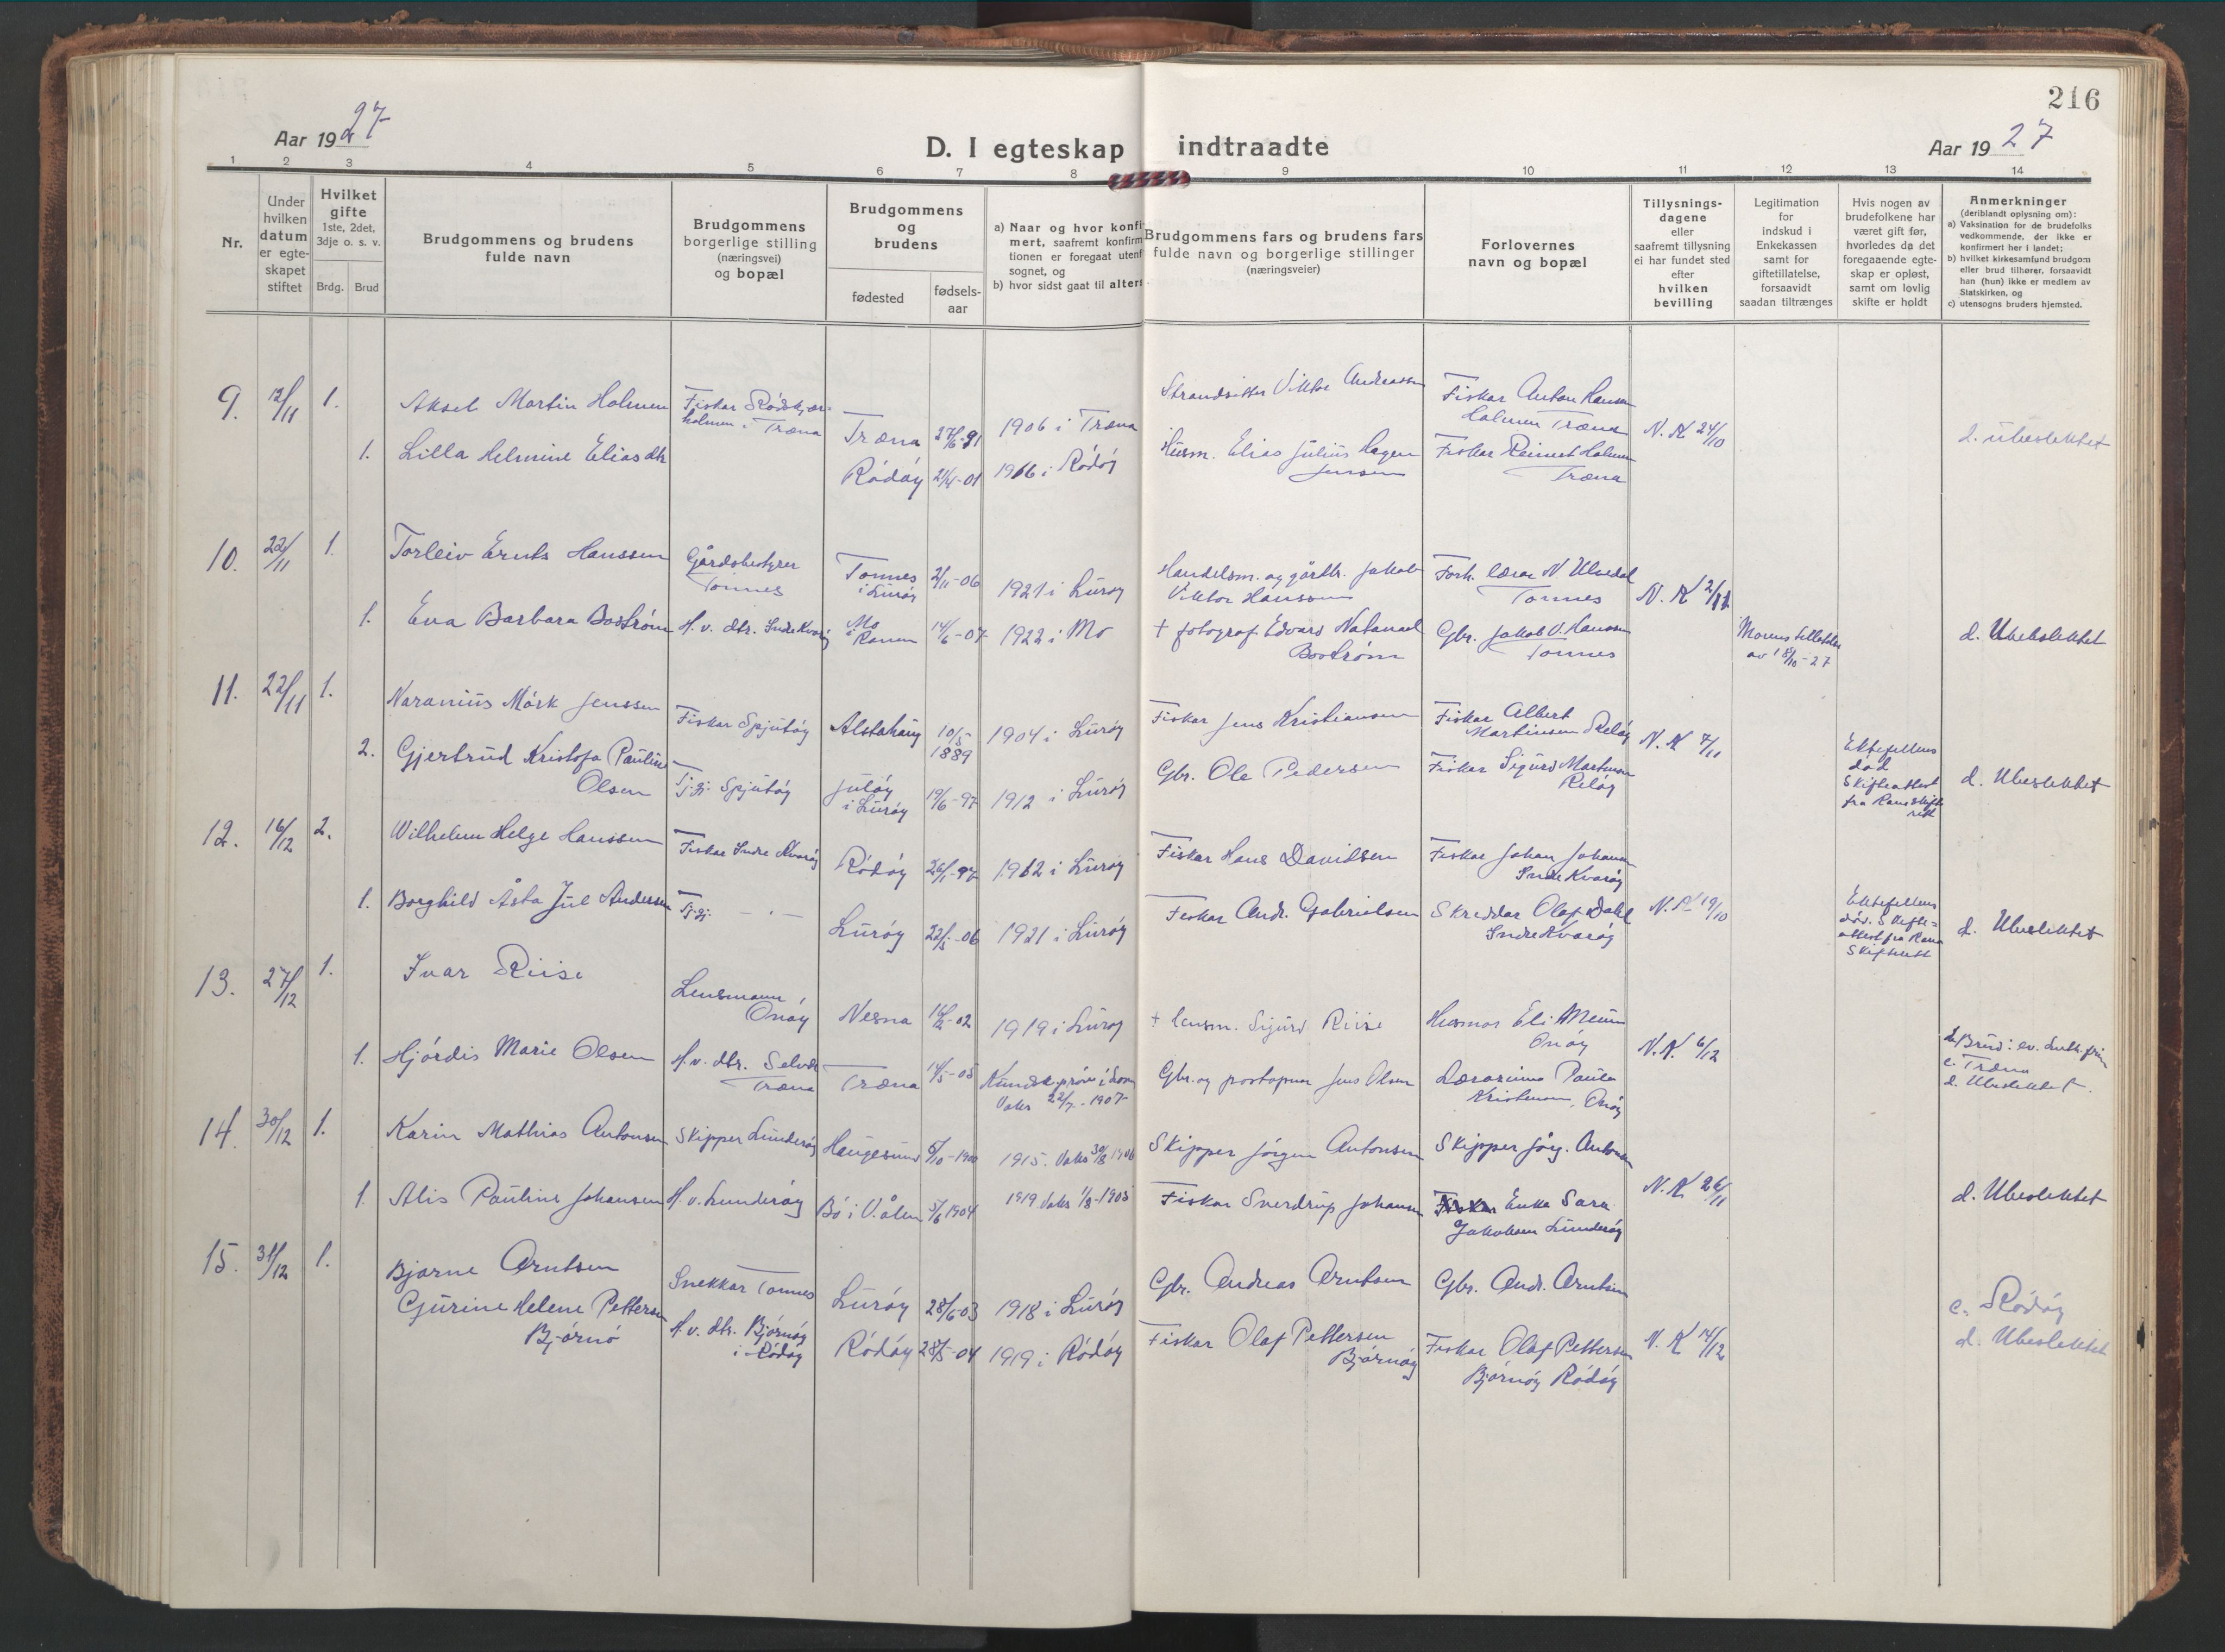 216
Aar 1927
D. I egteskap indtraadte
Aar 1927
1 2 3 4 5 6 7 8 9 10 11 12 13 14
Nr.
Under
hvilken
datum
er egte-
skapet
stiftet
Hvilket
gifte
1ste, 2det,
3dje o. s. v.
Brdg. Brud
Brudgommens og brudens
fulde navn
Brudgommens
borgerlige stilling
(næringsvei)
og bopæl
Brudgommens
og
brudens
fødested
fødsels-
aar
a) Naar og hvor konfi
mert, saafremt konfirm
tionen er foregaat utenf
sognet, og
b) hvor sidst gaat til alters
Brudgommens fars og brudens fars
fulde navn og borgerlige stillinger
(næringsveier)
Forlovernes
navn og bopæl
Tillysnings-
dagene
eller
saafremt tillysning
ei har fundet sted
efter
hvilken
bevilling
Legitimation
for
indskud i
Enkekassen
samt for
giftetillatelse,
forsaavidt
saadan tiltrænges
Hvis nogen av
brudefolkene har
været gift før,
hvorledes da det
foregaaende egte-
skap er opløst,
samt om lovlig
skifte er holdt
Anmerkninger
(deriblandt oplysning om):
a) Vaksination for de brudefolks
vedkommende, der ikke er
konfirmert her i landet;
b) hvilket kirkesamfund brudgom
eller brud tilhører, forsaavidt
han (hun) ikke er medlem av
Statskirken, og
c) utensogns bruders hjemsted.
9. 12/11 1. Aksel Martin Holmen
Fiskar Rödskjær-
holmen i Træna
Træna 27/6-91 1906 i Træna
Strandsitter Viktor Andreassen
Fiskar Anton Hansen
Holmen Træna
N. K 24/10
1. Lilla Helmine Eliasdtr
Rödöy 21/4-01 1916 i Rödöy
Husm. Elias Julius Hagen
Jensen
Fiskar Reinert Holmen
Træna
d. Ubeslektet
10. 22/11 1. Torleiv Ernts Hanssen
Gårdsbestyrer
Tonnes
Tonnes
i Luröy
2/11-06 1921 i Luröy
Handelsm. og gårdbr. Jakob
Viktor Hanssen
Forh. lærar N Ulvedal
Tonnes
N. K 2/11
1. Eva Barbara Boström
H. v. dtr. Indre Kvaröy
Mo
i Ranen
14/6-07 1922 i Mo
† fotograf Edvard Natanael
Boström
Gbr. Jakob V. Hanssen
Tonnes
av 18/10-27
d. Ubeslektet
11. 22/11 1. Naranius Mörk Jenssen
Fiskar Spjutöy
Alstahaug
10/5
1889
1904 i Luröy
Fiskar Jens Kristiansen
Fiskar Albert
Martinsen Relöy
N. K 7/11
2. Gjertrud Kristofa Pauline
Olsen
Tj.gj. Spjutöy
Jutöy
i Luröy
19/6-97 1912 i Luröy
Gbr. Ole Pedersen
Fiskar Sigurd Martinsen
Relöy
Ektefellens
död
Skifteattest
fra Rana skifte
rett
d. Ubeslektet
12. 16/12 2. Wilhelm Helge Hanssen
Fiskar Indre Kvaröy
Rödöy 26/1-97 1912 i Luröy
Fiskar Hans Davidsen
Fiskar Johan Johansen
Indre Kvaröy
1. Borghild Åsta Jul Andersen
Tj.gj. - " -
Luröy 22/5-06 1921 i Luröy
Fiskar Andr. Gabrielsen
Skreddar Olaf Dahl
Indre Kvaröy
19/10
Ektefellens
död. Skifte-
attest fra Rana
Skifterett
d. Ubeslektet
13. 27/12 1. Ivar Riise
Lensmann,
Onöy
Nesna 1919 i Luröy
† lensm. Sigurd Riise
Onöy
N. K. 6/12
1. Hjördis Marie Olsen
H. v. dtr. Selvær
Træna
Træna 14/5-05
Vaks 22/7-1907
Gbr. og postopnar Jens Olsen
Lærarinne Paula
Kristensen, Onöy
b. Brud: ev. luth. fri
c. Træna
d. Ubeslektet.
14. 30/12 1. Karin Mathias Antonsen
Skipper Lunderöy
Haugesund 5/10-1900 1915. Vaks 30/8 1906
Skipper Jörgen Antonsen
Skipper Jörg. Antonsen
N. K 26/11
1. Alis Pauline Johansen
H. v. Lunderöy
Bö i V.ålen 5/6 1904 1919 Vaks 1/8-1905
Fiskar Sverdrup Johansen
Enke Sara
Jakobsen Lunderöy
d. Ubeslektet
15. 31/12 1. Bjarne Arntsen
Snekkar Tonnes
Luröy 28/6-03 1918 i Luröy
Gbr. Andreas Arntsen
Gbr. Andr. Arntsen
Gurine Helene Pettersen
Björnö
H. v. dtr. Björnöy
i Rödöy
Rödöy 28/5-04 1919 i Rödöy
Fiskar Olaf Pettersen
Björnöy
Fiskar Olaf Pettersen
Björnöy Rödöy
N. K 14/12
c. Rödöy
d. Ubeslektet